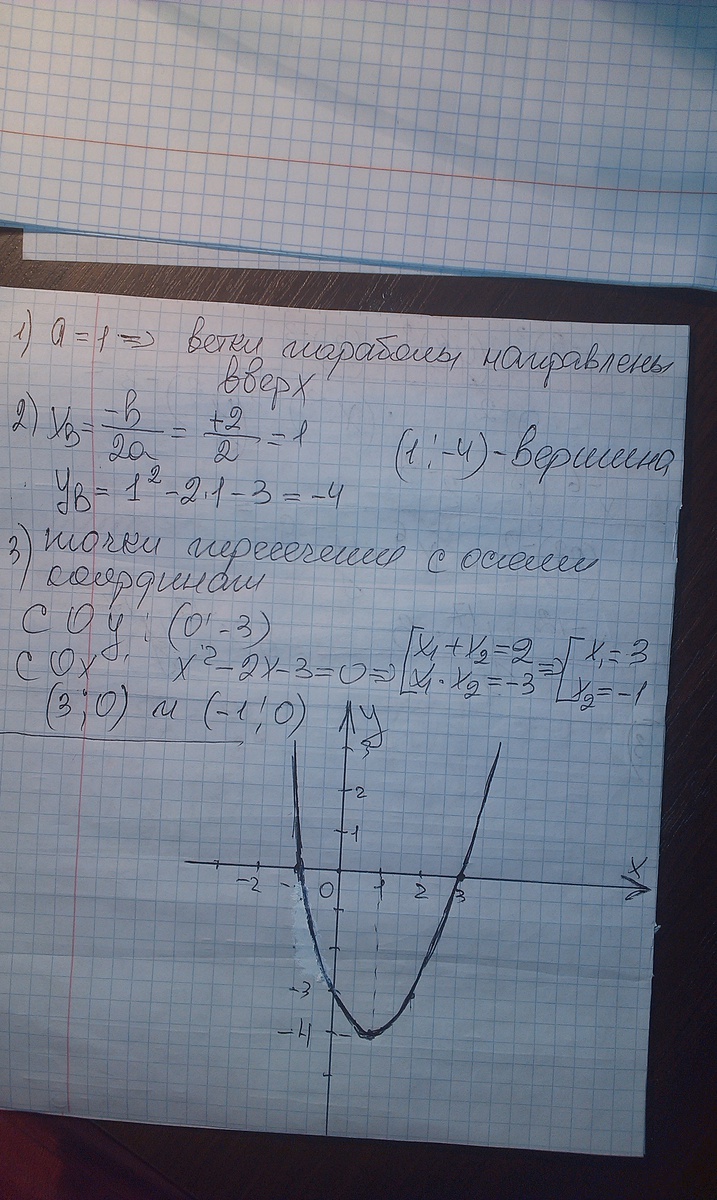 1) a = 1 => ветки параболы направлены
вверх
2) xв = -в/2a = +2/2 = 1
(1; -4) - вершина
yв = 1² - 2·1 - 3 = -4
3) точки пересечения с осями
координат
С Oy: (0; -3)
С Ox x² - 2x - 3 = 0 => [x₁ + x₂ = 2 => [x₁ = 3
x₁ · x₂ = -3 x₂ = -1
(3; 0) и (-1; 0)
y
3
2
1
x
-2 -1 0 1 2 3
-3
-4